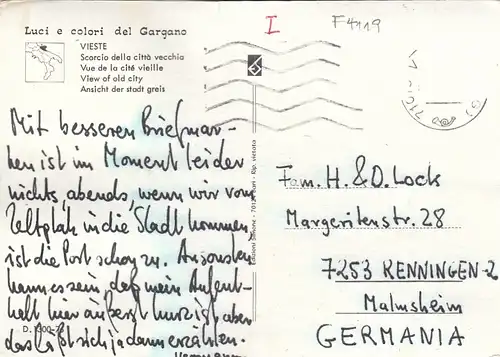 I
F4119
Luci e colori del Gargano
VIESTE
Scorcio della città vecchia
Vue de la cité vieille
View of old city
Ansicht der stadt greis
Mit besseren Briefmar-
ken ist im Moment leider
nichts, abends, wenn wir vom
Zeltplatz in die Stadt kommen,
ist die Post schon zu. Ansonsten
kann es sein, daß mein Aufent-
halt hier äußerst kurz ist, aber
das läßt sich ja dann erzählen.
D. 1300-72
Rip. vietata
Fam. H. & D. Lock
Margeritenstr. 28
7253 RENNINGEN-2
Malmsheim
GERMANIA